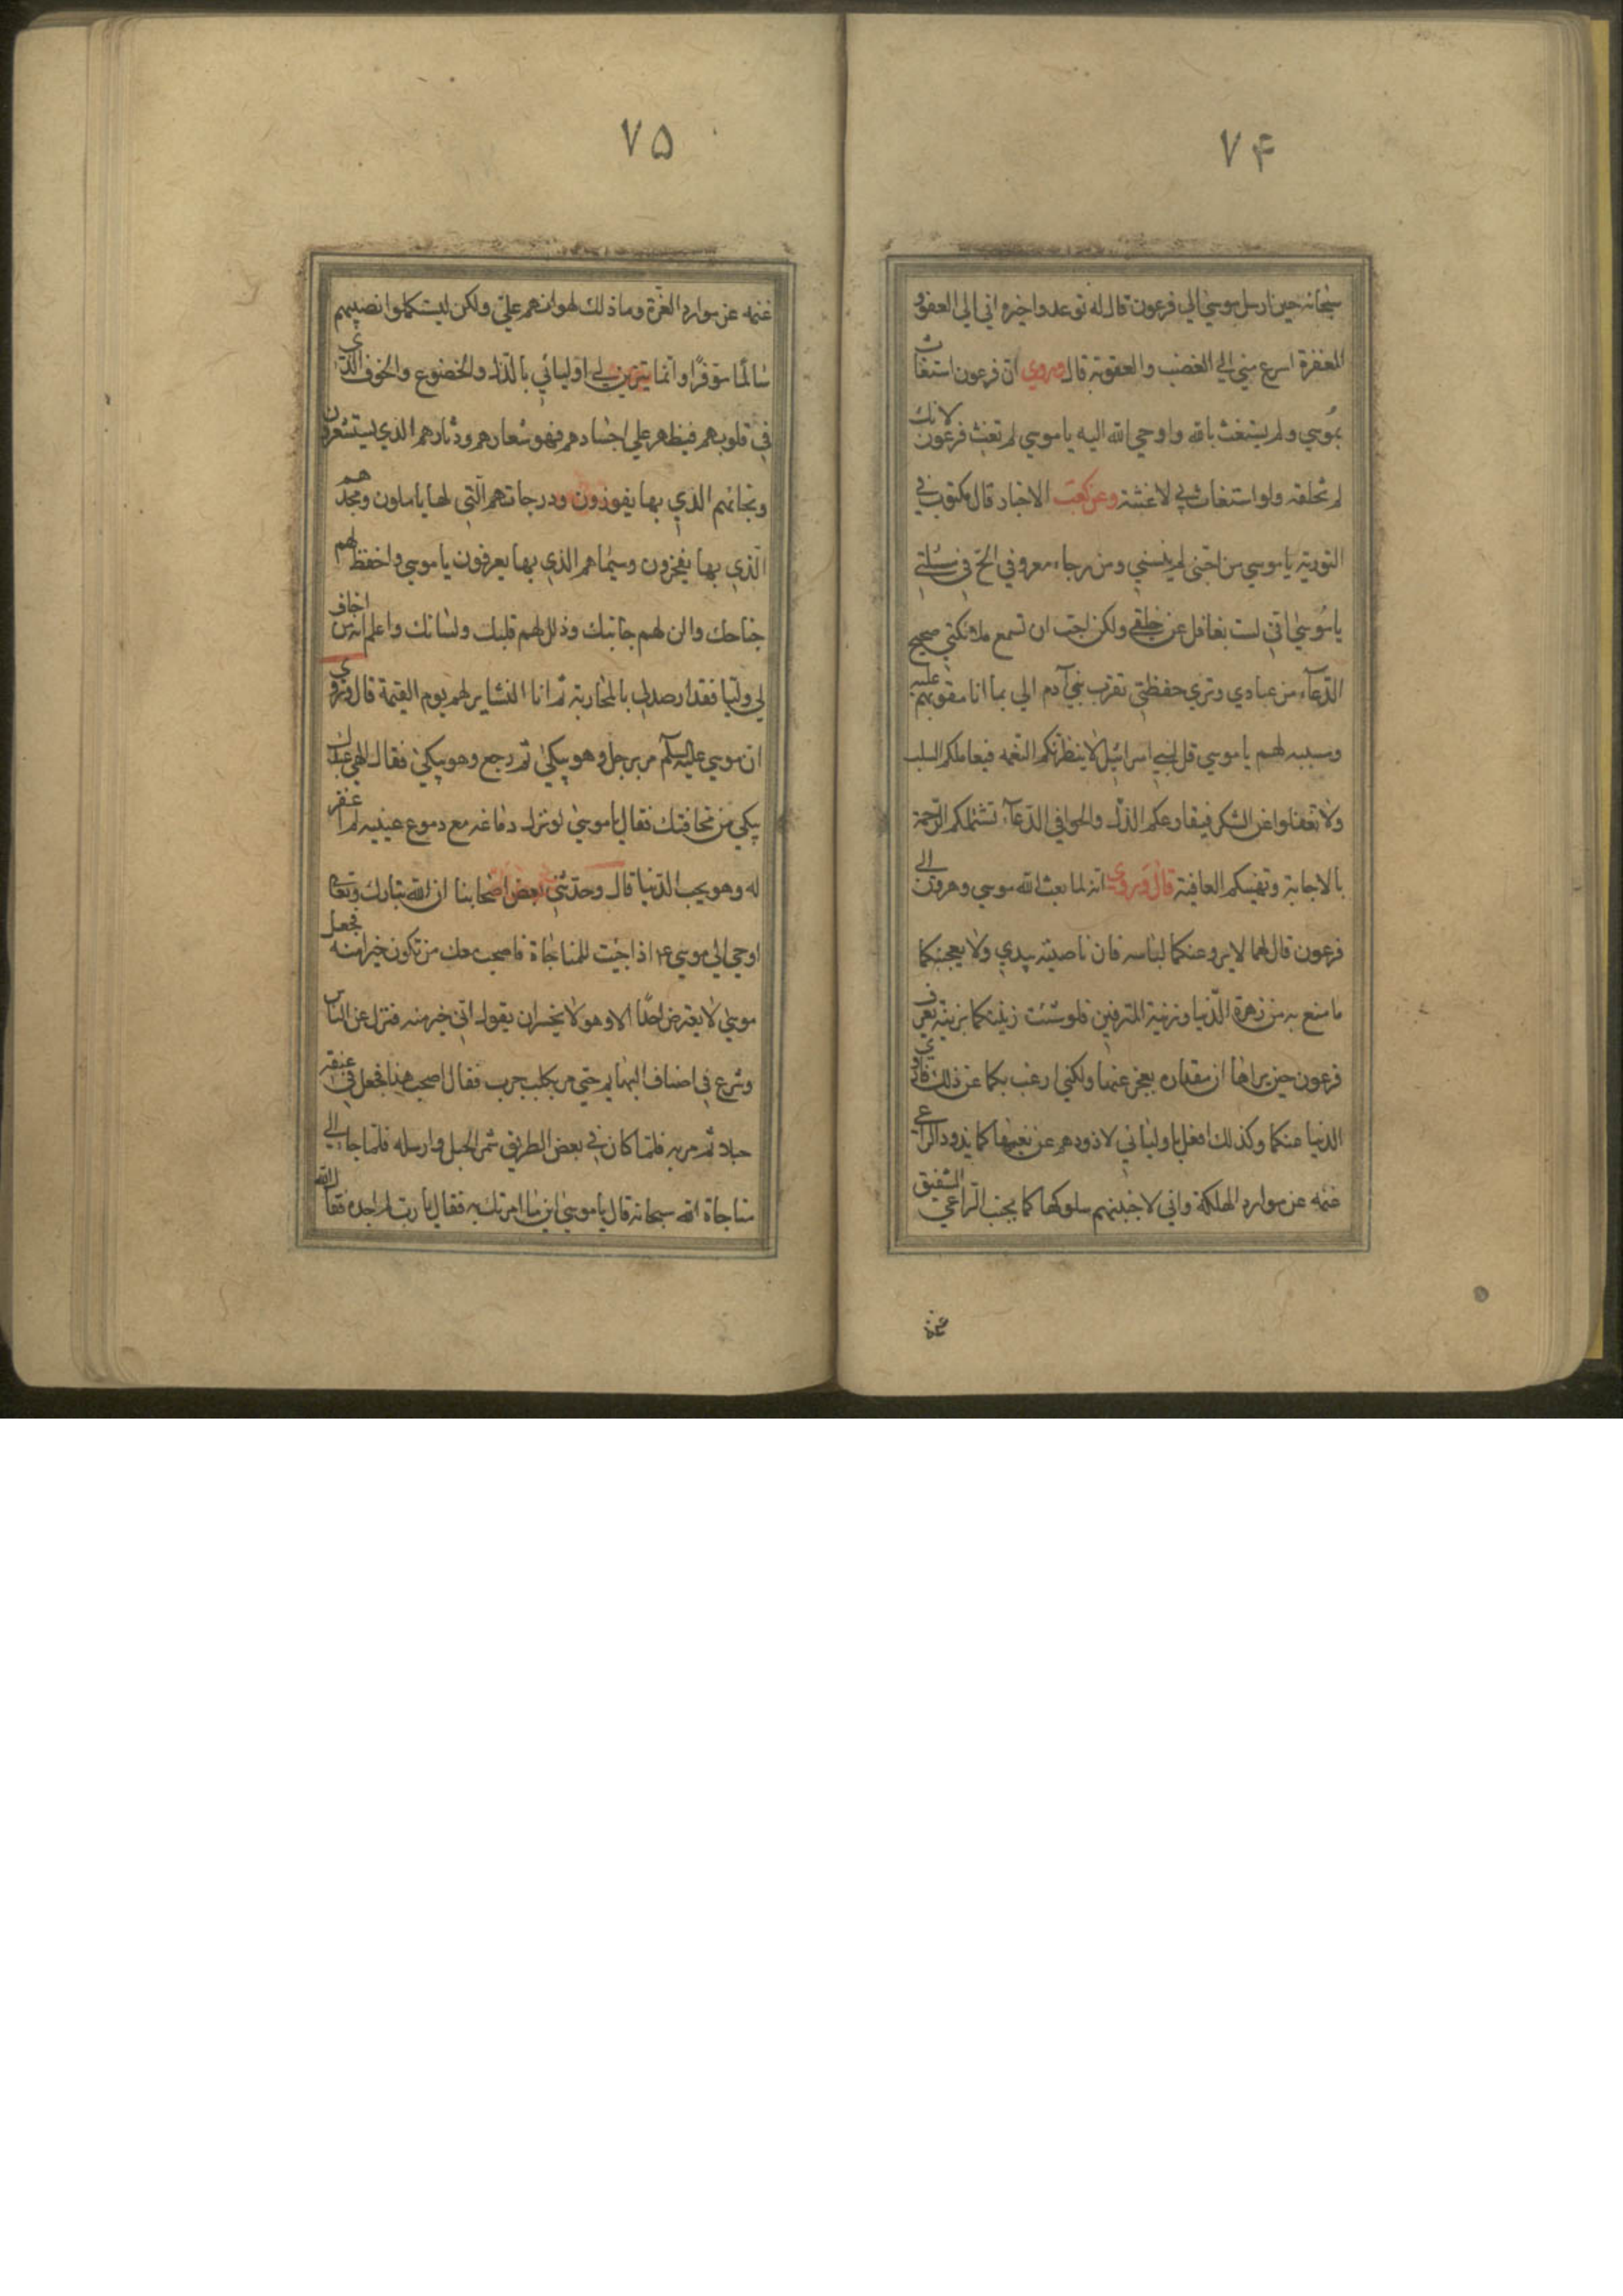 ۷۴
سبحانه حين ارسل موسي الي فرعون قال له توعده واخبره اني الي العفو و
المغفرة اسرع مني الي الغضب والعقوبة قال وروي ان فرعون استغاث
بموسي ولم يستغث بالله واوحي الله اليه يا موسي لم تغث فرعون لانك
لم تخلقه ولو استغاث بي لاغثته وعن كعب الاخبار قال مكتوب في
التورية يا موسي من احبني لم ينسني ومن رجاء معروفي الح في مسئلتي
يا موسي اني لست بغافل عن خلقي ولكن احب ان تسمع ملائكتي صحيح
الدعاء من عبادي وتري حفظتي تقرب بني آدم الي بما انا مقويهم عليه
ومسببه لهم يا موسي قل لبني اسرائيل لا ينظرنكم النعمه فيعاجلكم السلب
ولا تغفلوا عن الشكر فيقارعكم الذل والحوا في الدعاء تشملكم الرحمة
بالاجابة وتهنيكم العافية قال وروي انه لما بعث الله موسي وهرون الي
فرعون قال لهما لا يروعنكما لباسه فان ناصيته بيدي ولا يعجبنكما
ما متع به من زهرة الدنيا وزينة المترفين فلو شئت زينتكما بزينة يعرف
فرعون حين يراها ان مقدرته يعجز عنها ولكني ارغب بكما عن ذلك فازوي
الدنيا عنكما وكذلك افعل باوليائي لاذودهم عن نعيمها كما يذود الراعي
غنمه عن موارد الهلكة واني لاجنبنهم سلوكها كما يجنب الراعي الشفيق
غنمه
۷۵
غنمه عن موارد الغرة وما ذلك لهوانهم علي ولكن ليستكملوا نصيبهم
سالما موفرا وانما يتزين لي اوليائي بالذل والخضوع والخوف الذي
في قلوبهم فيظهر علي اجسادهم فهو شعارهم ودثارهم الذي يستشعرون
ونجاتهم الذي بها يفوزون ودرجاتهم التي لها ياملون ومجدهم
الذي بها يفخرون وسيماهم الذي بها يعرفون يا موسي واخفظ لهم
جناحك والن لهم جانبك وذلل لهم قلبك ولسانك واعلم انه من اخاف
لي وليا فقد ارصد لي بالمحاربة ثم انا الثائر لهم يوم القيمة قال وروي
ان موسي عليه السلام مر برجل وهو يبكي ثم رجع وهو يبكي فقال الهي عبدك
يبكي من مخافتك فقال يا موسي لو نزل دماغه مع دموع عينيه لم اغفر
له وهو يحب الدنيا قال وحدثني بعض اصحابنا ان الله تبارك وتعالي
اوحي الي موسي ع اذا جئت للمناجاة فاصحب معك من تكون خيرا منه فجعل
موسي لا يعترض احدا الا وهو لا يجسر ان يقول اني خير منه فنزل عن الناس
وشرع في اصناف البهايم حتي مر بكلب جرب فقال اصحب هذا فجعل في عنقه
حبلا ثم مر به فلما كان في بعض الطريق شمر الحبل وارسله فلما جاء الي
مناجاة الله سبحانه قال يا موسي اين ما امرتك به فقال يا رب لم اجده فقال الله